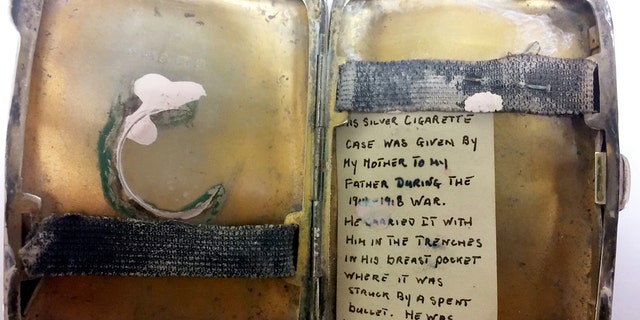 IS SILVER CIGARETTE
CASE WAS GIVEN BY
MY MOTHER TO MY
FATHER DURING THE
1914-1918 WAR.
HE CARRIED IT WITH
HIM IN THE TRENCHES
IN HIS BREAST POCKET
WHERE IT WAS
STRUCK BY A SPENT
BULLET. HE WAS